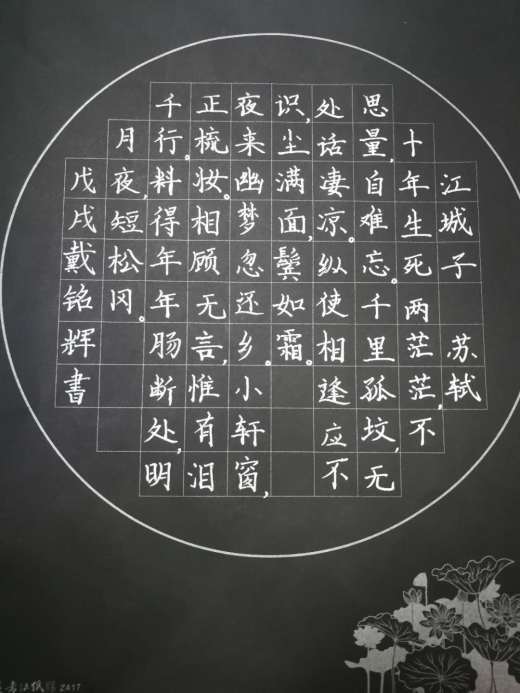 江城子 苏轼
十年生死两茫茫,不
思量,自难忘。千里孤坟,无
处话凄凉。纵使相逢应不
识,尘满面,鬓如霜。
夜来幽梦忽还乡。小轩窗,
正梳妆。相顾无言,惟有泪
千行。料得年年肠断处,明
月夜,短松冈。
戊戌戴铭辉書